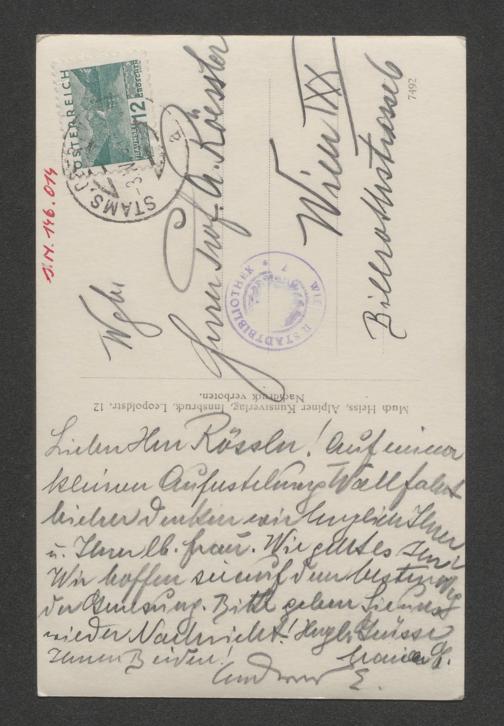 ÖSTERREICH
12
GROSCHEN
STAMS
S.N. 146.014
Wgbr
Herrn Prof. A. Roessler
Wien IXX
Billrothstrasse 6
7492
WIENER STADTBIBLIOTHEK
Much Heiss, Alpiner Kunstverlag, Innsbruck, Leopoldstr. 12
Nachdruck verboten.
Lieber Herr Rössler! Auf einer
kleinen Wallfahrt
bisher denken wir herzlich Ihrer
u. Ihrer lb. Frau. Wie geht es Ihnen?
Wir hoffen sie auf dem besten Weg
der Genesung. Bitte geben Sie uns
wieder Nachricht! Herzl. Grüsse
Ihnen Beiden!